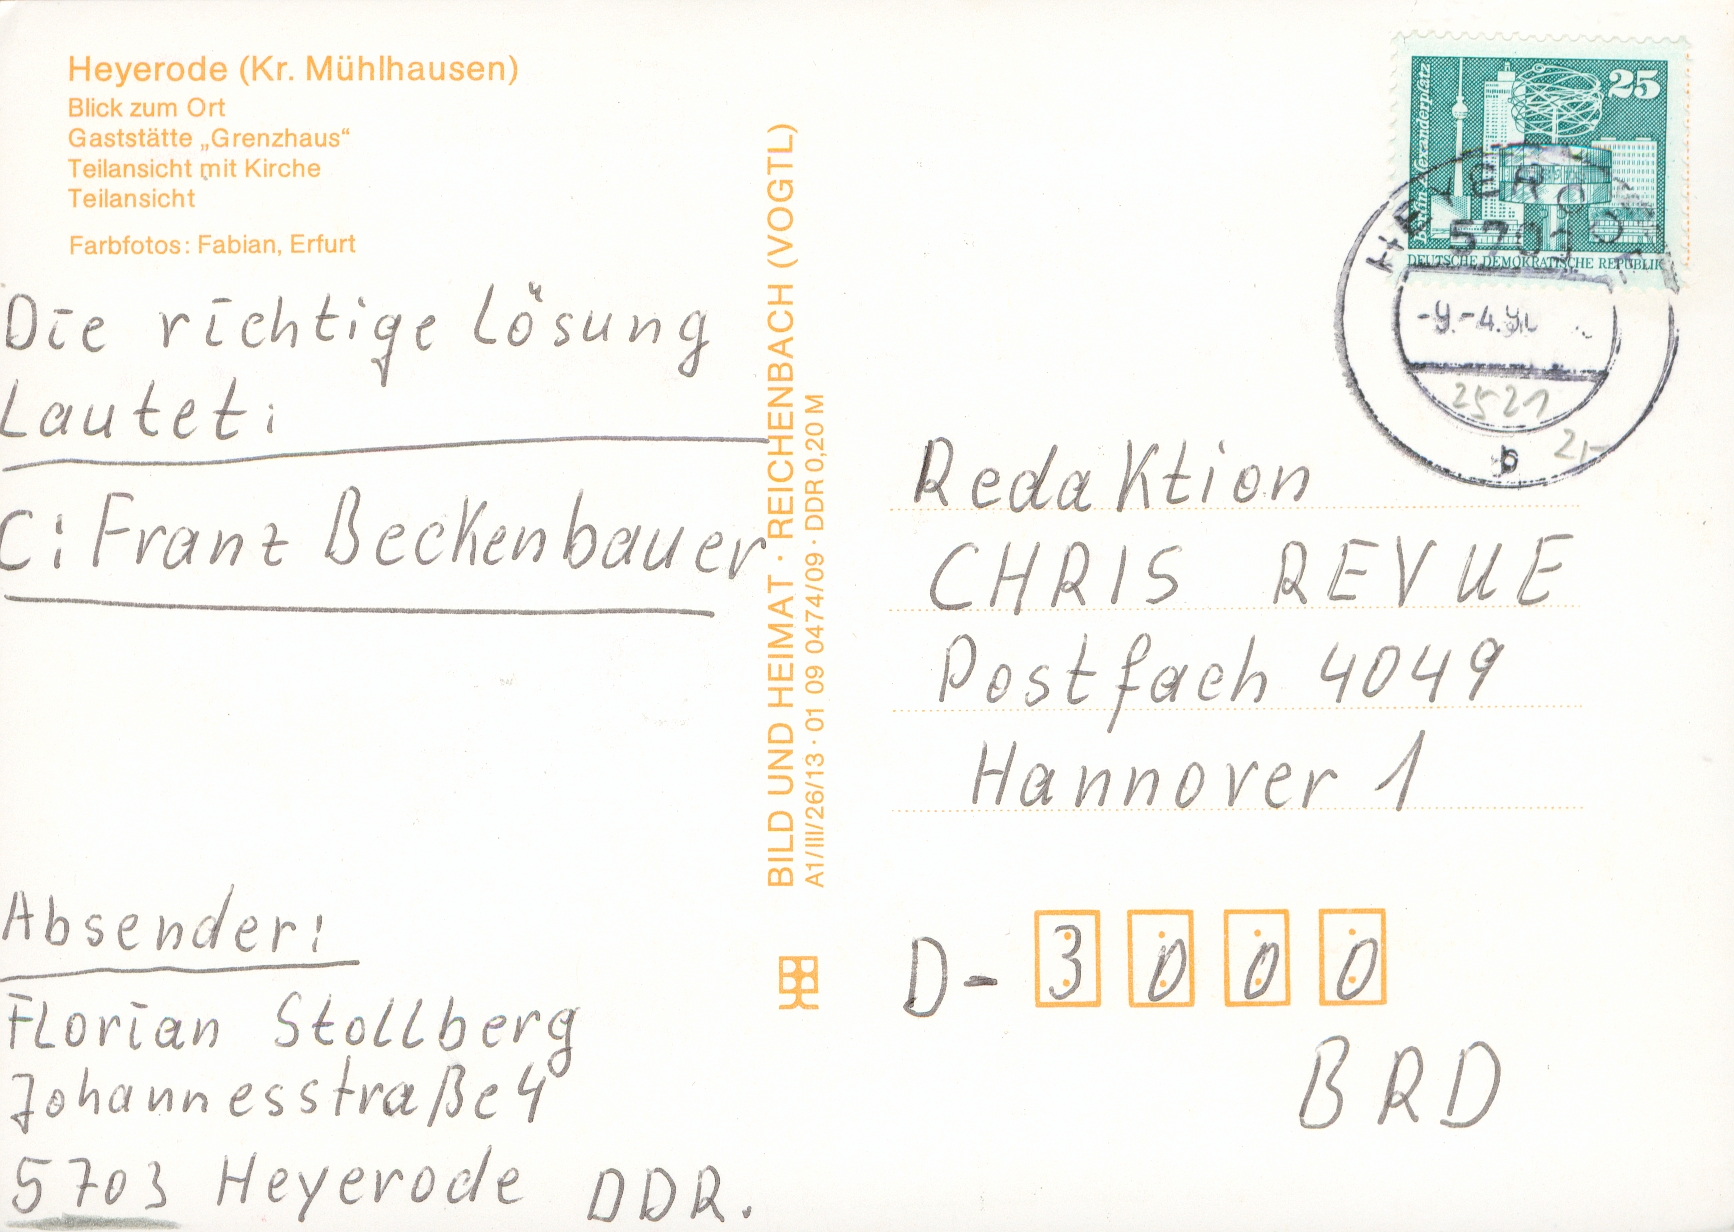 Heyerode (Kr. Mühlhausen)
Blick zum Ort
Gaststätte „Grenzhaus“
Teilansicht mit Kirche
Teilansicht
Farbfotos: Fabian, Erfurt
Die richtige Lösung
Lautet:
C: Franz Beckenbauer
Absender:
Florian Stollberg
Johannesstraße 4
5703 Heyerode DDR.
BILD UND HEIMAT · REICHENBACH (VOGTL)
A1/III/26/13 · 01 09 0474/09 · DDR 0,20 M
25
Berlin-Alexanderplatz
DEUTSCHE DEMOKRATISCHE REPUBLIK
HEYERODE
5703
b
2521
2,-
Redaktion
CHRIS REVUE
Postfach 4049
Hannover 1
D- 3 0 0 0
BRD